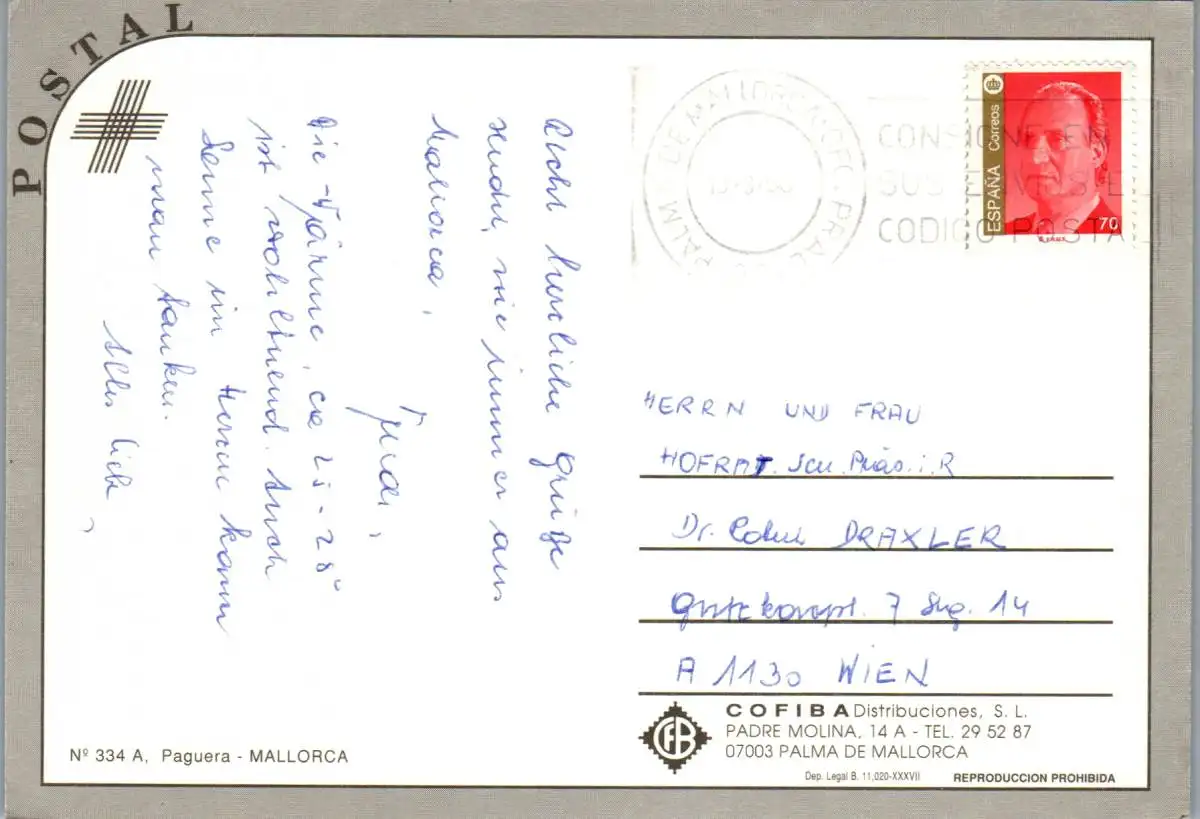 POSTAL
Recht herzliche Grüße
sendet, wie immer aus
Mallorca,
Trudi,
die Wärme, ca 25-28°
ist wohltuend. Auch
Sonne im Herzen kann
man tanken.
Alles Liebe,
PALMA DE MALLORCA
CONSIGNE EN
SUS ENVIOS E
CODIGO POSTA
ESPAÑA Correos
70
HERRN UND FRAU
HOFRAT. Sen. Präs. i. R
Dr. DRAXLER
7 Stg. 14
A 1130 WIEN
Nº 334 A, Paguera - MALLORCA
CFB
COFIBA Distribuciones, S. L.
PADRE MOLINA, 14 A - TEL. 29 52 87
07003 PALMA DE MALLORCA
Dep. Legal B. 11,020-XXXVII
REPRODUCCION PROHIBIDA